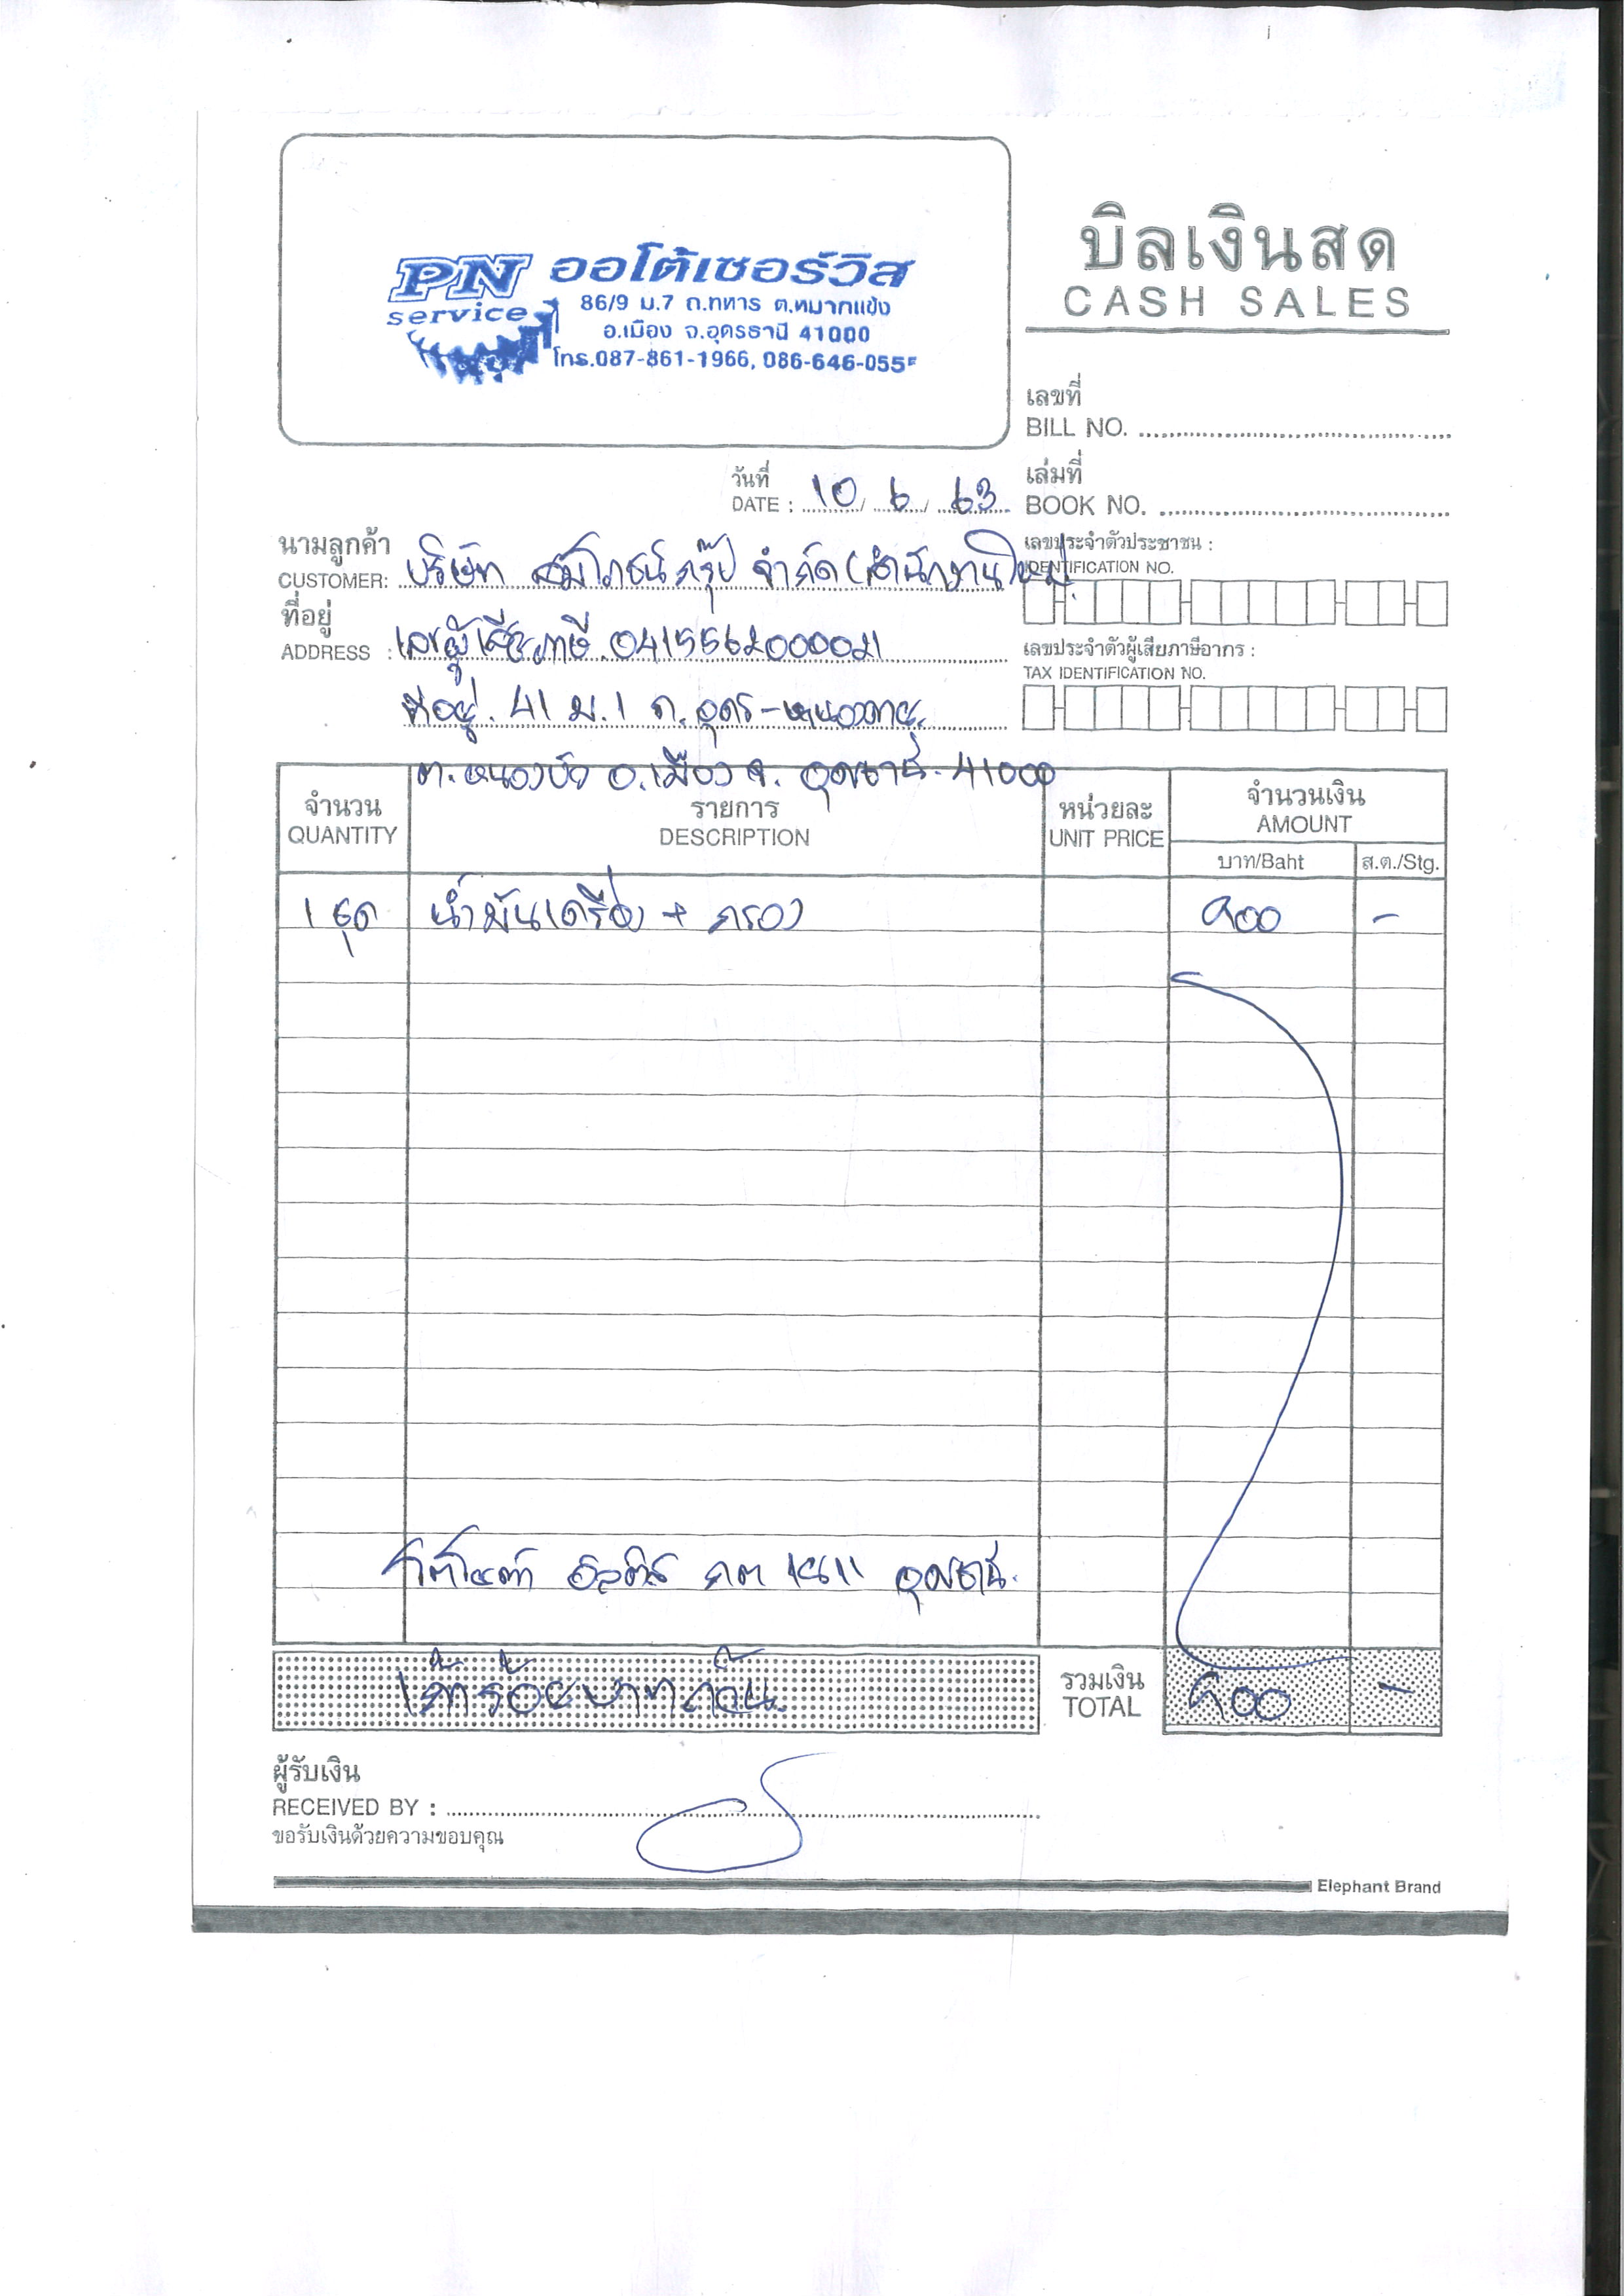 PN ออโต้เซอร์วิส
service
86/9 ม.7 ถ.ทหาร ต.หมากแข้ง
อ.เมือง จ.อุดรธานี 41000
โทร.087-861-1966, 086-646-055
บิลเงินสด
CASH SALES
เลขที่
BILL NO.
วันที่
DATE : 10 / 6 / 63
เล่มที่
BOOK NO.
นามลูกค้า
CUSTOMER: บริษัท สมโภชน์กรุ๊ป จำกัด (สำนักงานใหญ่)
เลขประจำตัวประชาชน :
IDENTIFICATION NO.
ที่อยู่
ADDRESS : เลขผู้เสียภาษี 0415562000021
เลขประจำตัวผู้เสียภาษีอากร :
TAX IDENTIFICATION NO.
ที่อยู่. 41 ม.1 ถ.อุดร-หนองคาย.
ต.หนองบัว อ.เมือง จ. อุดรธานี. 41000
จำนวน รายการ หน่วยละ จำนวนเงิน
QUANTITY DESCRIPTION UNIT PRICE AMOUNT
บาท/Baht ส.ต./Stg.
1 ชุด น้ำมันเครื่อง + กรอง 900 -
โตโยต้า อัลติส กต 1811 อุดรธานี.
เก้าร้อยบาทถ้วน. รวมเงิน 900 -
TOTAL
ผู้รับเงิน
RECEIVED BY :
ขอรับเงินด้วยความขอบคุณ
Elephant Brand